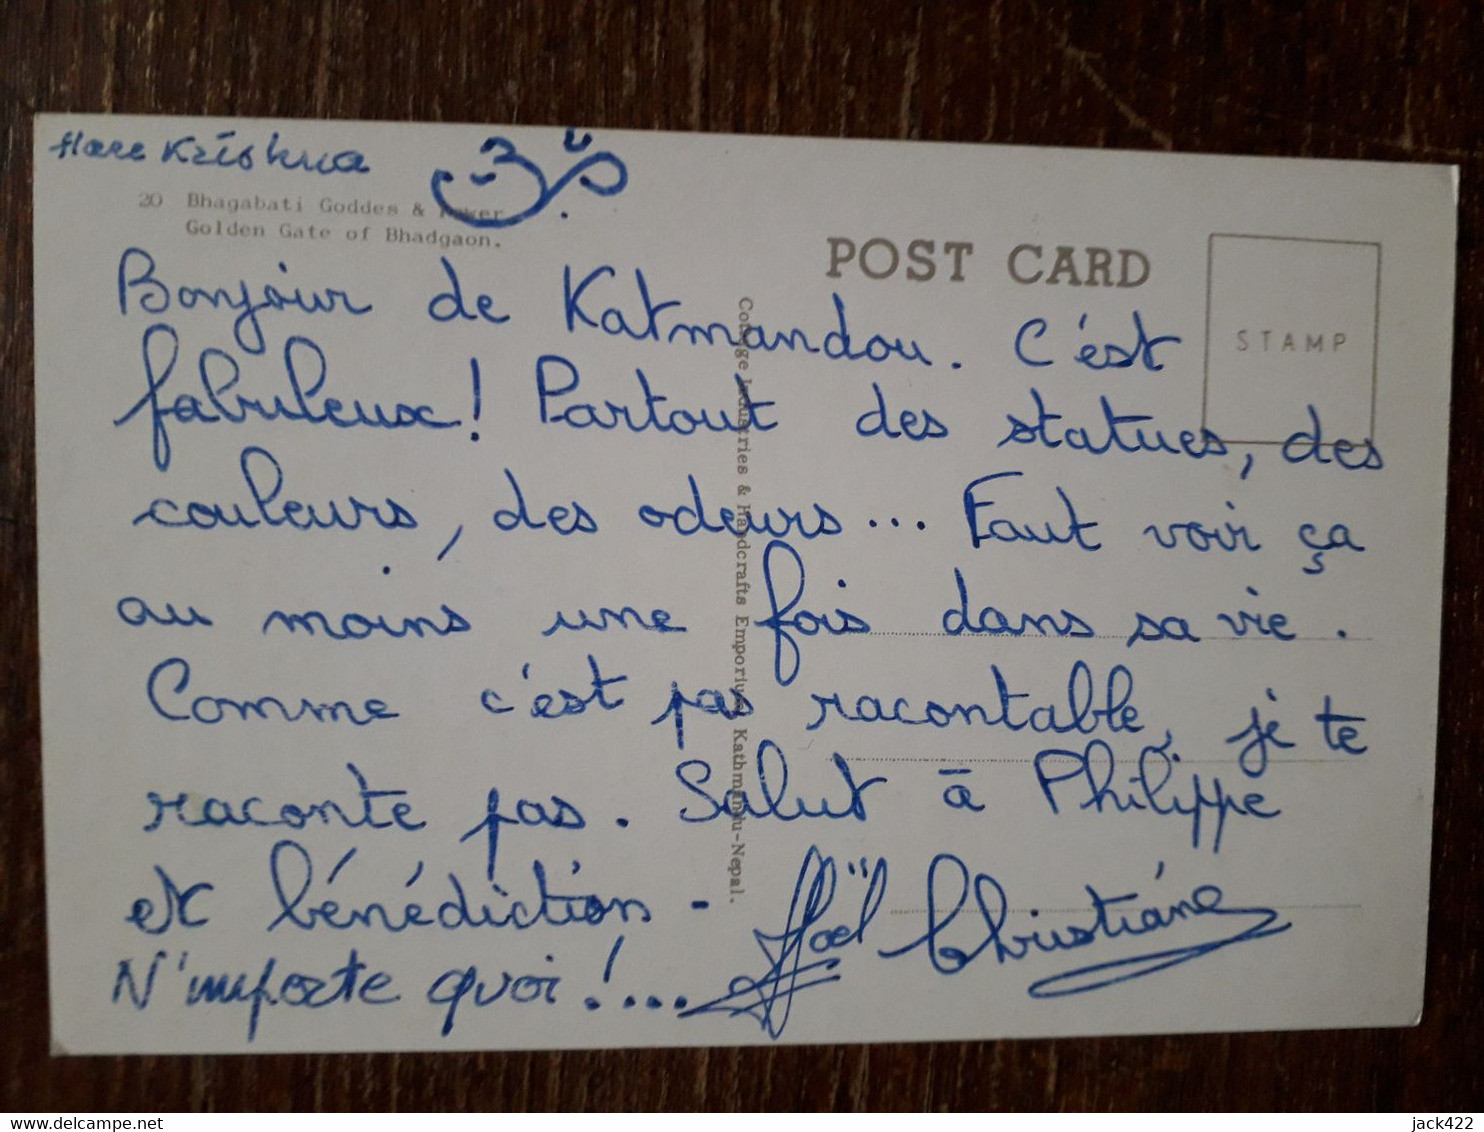 Hare Krishna
20 Bhagabati Goddes & Power
Golden Gate of Bhadgaon.
POST CARD
STAMP
Bonjour de Katmandou. C'est
fabuleux! Partout des statues, des
couleurs, des odeurs... Faut voir ça
au moins une fois dans sa vie.
Comme c'est pas racontable, je te
raconte pas. Salut à Philippe
et bénédiction -
N'importe quoi!...
Joël Christiane
Cottage Industries & Handcrafts Emporium Kathmandu-Nepal.
jack422
delcampe.net